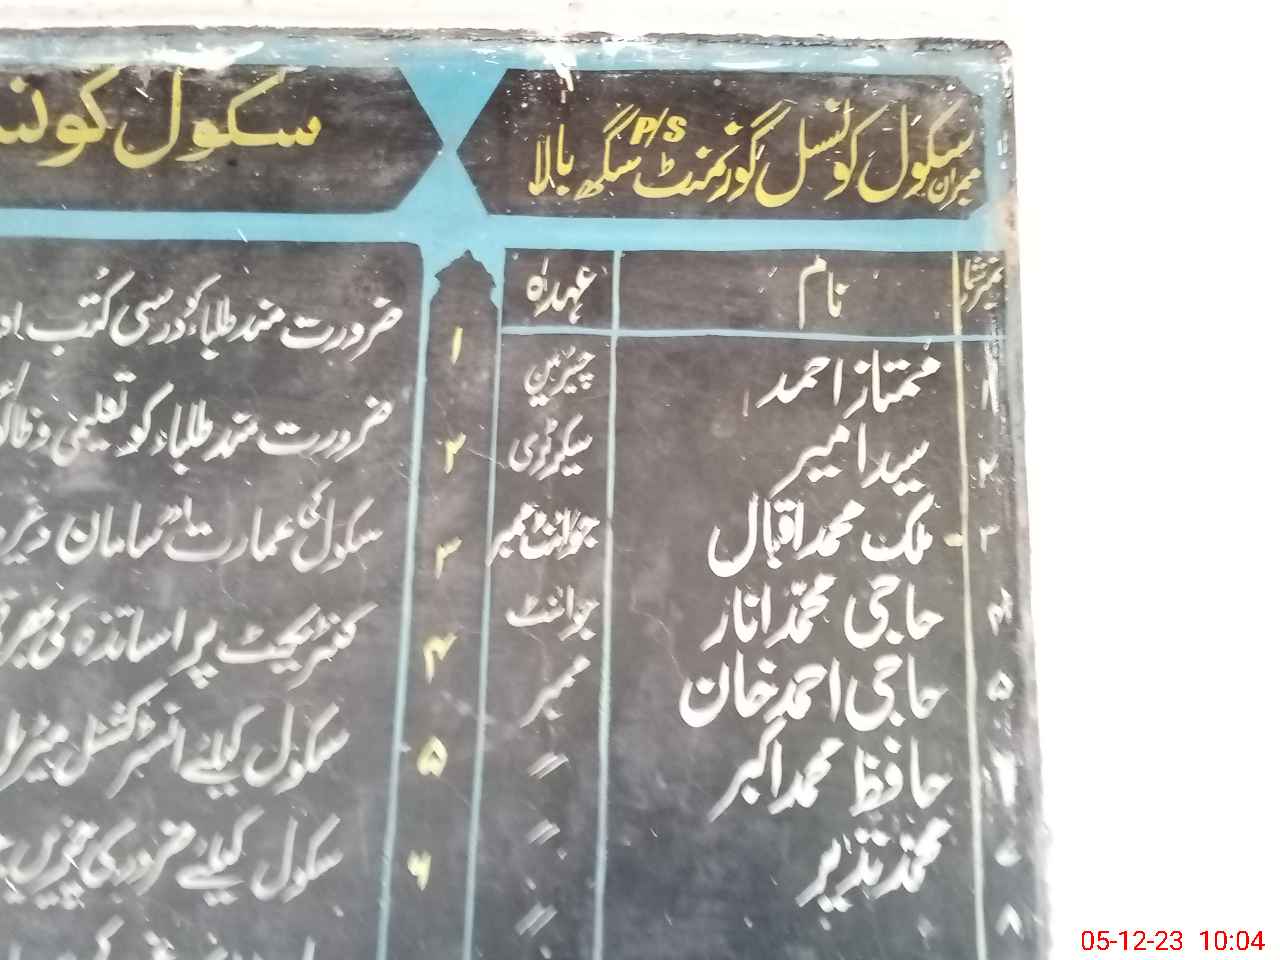 ممبران سکول کونسل گورنمنٹ P/S سگھ بالا
نمبر شمار نام عہدہ
۱ ممتاز احمد چیئرمین
۲ سید امیر سیکرٹری
۳ ملک محمد اقبال جوائنٹ ممبر
۴ حاجی محمد انار جوائنٹ
۵ حاجی احمد خان ممبر
۶ حافظ محمد اکبر 〃
۷ محمد نذیر 〃
۸ 〃
سکول کونسل
۱ ضرورت مند طلباء کو درسی کتب
۲ ضرورت مند طلباء کو تعلیمی
۳ سکول کی عمارت سامان
۴ کنٹریکٹ پر اساتذہ کی
۵ سکول کیلئے انسٹرکشنل
۶ سکول کیلئے ضروری
05-12-23 10:04